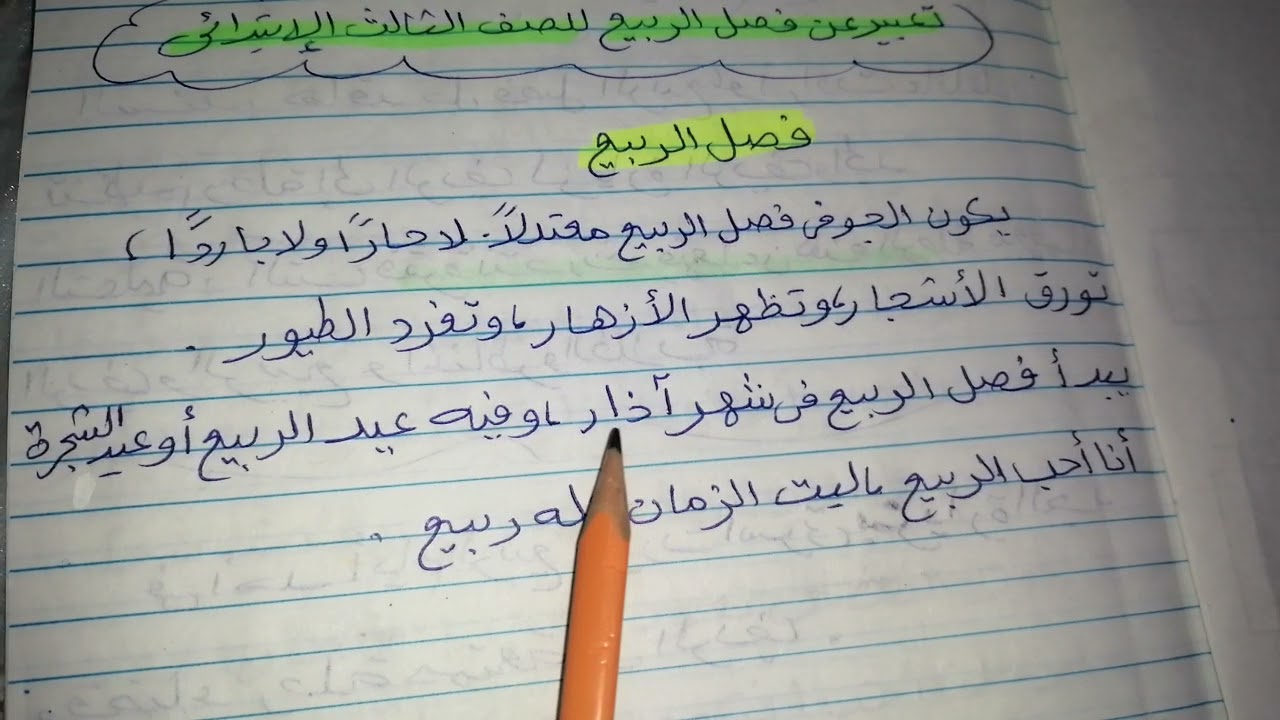 تعبير عن فصل الربيع للصف الثالث الإبتدائي
فصل الربيع
يكون الجو في فصل الربيع معتدلاً. لا حارًا ولا باردًا،
تورق الأشجار، وتظهر الأزهار، وتغرد الطيور.
يبدأ فصل الربيع في شهر آذار، وفيه عيد الربيع أو عيد الشجرة
أنا أحب الربيع، ليت الزمان له ربيع.